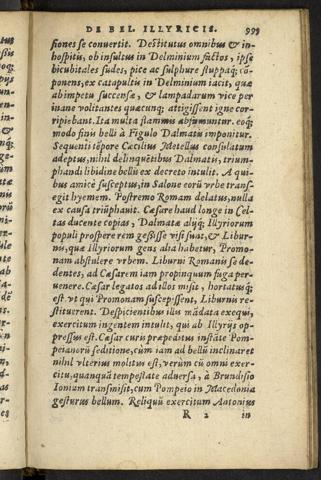 DE BEL. ILLYRICIS. 999
siones se convertit. Destitutus omnibus & in-
hospitis, ob insultus in Delminium factos, ipse
bicubitales sudes, pice ac sulphure stuppaq́; cō-
ponens, ex catapultis in Delminium iacit, quæ
ab impetu succensæ, & lampadarum vice per
inane volitantes quæcunq; attigissent igne cor-
ripiebant. Ita multa flammis absumuntur. eoq́;
modo finis belli à Figulo Dalmatis imponitur.
Sequenti tēpore Cæcilius Metellus consulatum
adeptus, nihil delinquētibus Dalmatis, trium-
phandi libidine bellū ex decreto intulit. A qui-
bus amicè susceptus, in Salone eorū vrbe transe-
git hyemem. Postremo Romam delatus, nulla
ex causa triūphauit. Cæsare haud longe in Cel-
tas ducente copias, Dalmatæ alijq́; Illyriorum
populi prospere rem gessisse visi sunt, & Libur-
nis, quæ Illyriorum gens alia habetur, Promo-
nam abstulere vrbem. Liburni Romanis se de-
dentes, ad Cæsarem iam propinquum fuga per-
uenere. Cæsar legatos ad illos misit, hortatusq́;
est vt qui Promonam suscepissent, Liburnis re-
stituerent. Despicientibus illis mādata exequi,
exercitum ingentem intulit, qui ab Illyrijs op-
pressus est. Cæsar curis præpeditus instāte Pom-
peianorū seditione, cùm iam ad bellū inclinaret
nihil vlterius molitus est, verùm cū omni exer-
citu, quanquā tempestate aduersa, à Brundisio
Ionium transmisit, cum Pompeio in Macedonia
gesturus bellum. Reliquū exercitum Antonius
R 2 in